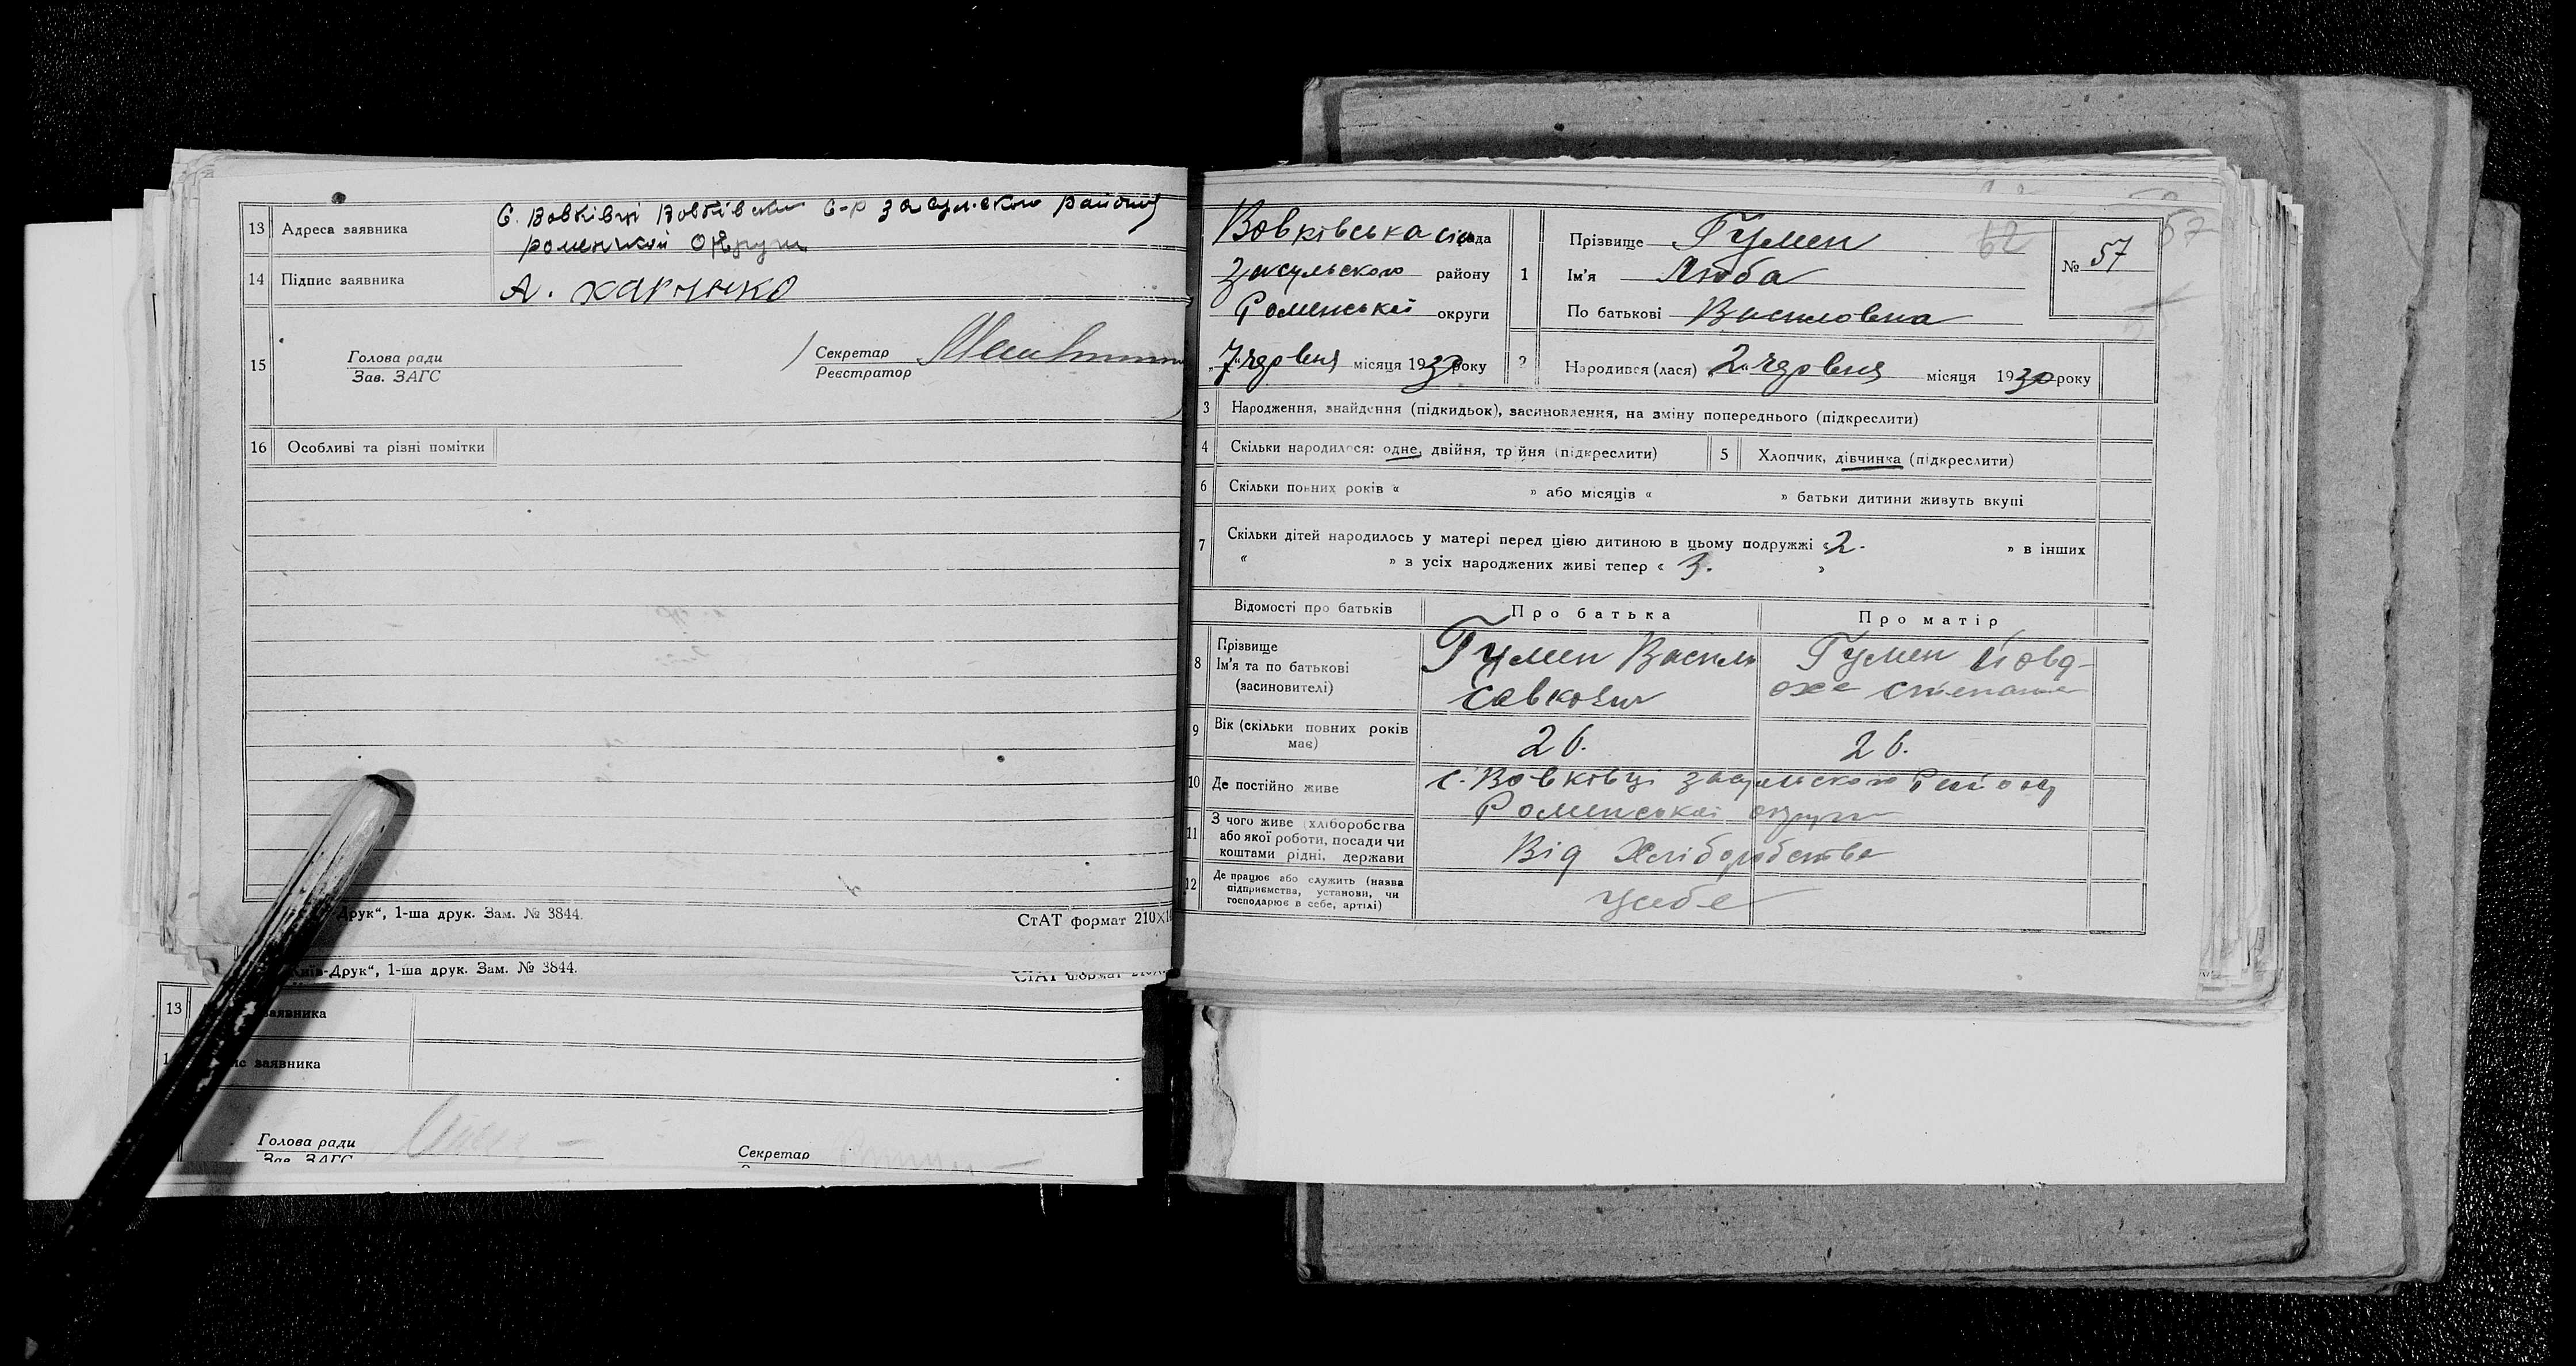 13 Адреса заявника С. Вовківці Вовківська с-р засульского району
роменської округи
14 Підпис заявника А. Харченко
15 Голова ради
Зав. ЗАГС
Секретар
Реєстратор
16 Особливі та різні помітки
Друк“, 1-ша друк. Зам. № 3844. СтАТ формат 210×1
Київ-Друк“, 1-ша друк. Зам. № 3844. СтАТ формат 210×
13 заявника
1 ис заявника
Голова ради
Зав. ЗАГС
Секретар
57
62
Вовківська сільрада
Засульского району
Роменської округи
„7“ червня місяця 1930 року
1 Прізвище Гумен
Ім'я Люба
По батькові Василовна
№ 57
2 Народився (лася) „2“ червня місяця 1930 року
3 Народження, знайдення (підкидьок), засиновлення, на зміну попереднього (підкреслити)
4 Скільки народилося: одне, двійня, трійня (підкреслити) 5 Хлопчик, дівчинка (підкреслити)
6 Скільки повних років « » або місяців « » батьки дитини живуть вкупі
7 Скільки дітей народилось у матері перед цією дитиною в цьому подружжі «2. » в інших
« » з усіх народжених живі тепер « 3. »
Відомості про батьків Про батька Про матір
8 Прізвище
Ім'я та по батькові
(засиновителі)
Гумен Василь
Савкович
Гумен Йовд-
оха
9 Вік (скільки повних років
має)
26. 26.
10 Де постійно живе с. Вовківці засульского району
Роменської округи
11 З чого живе (хліборобства
або якої роботи, посади чи
коштами рідні, держави
Від Хліборобства
12 Де працює або служить (назва
підприємства, установи, чи
господарює в себе, артілі)
Усебе